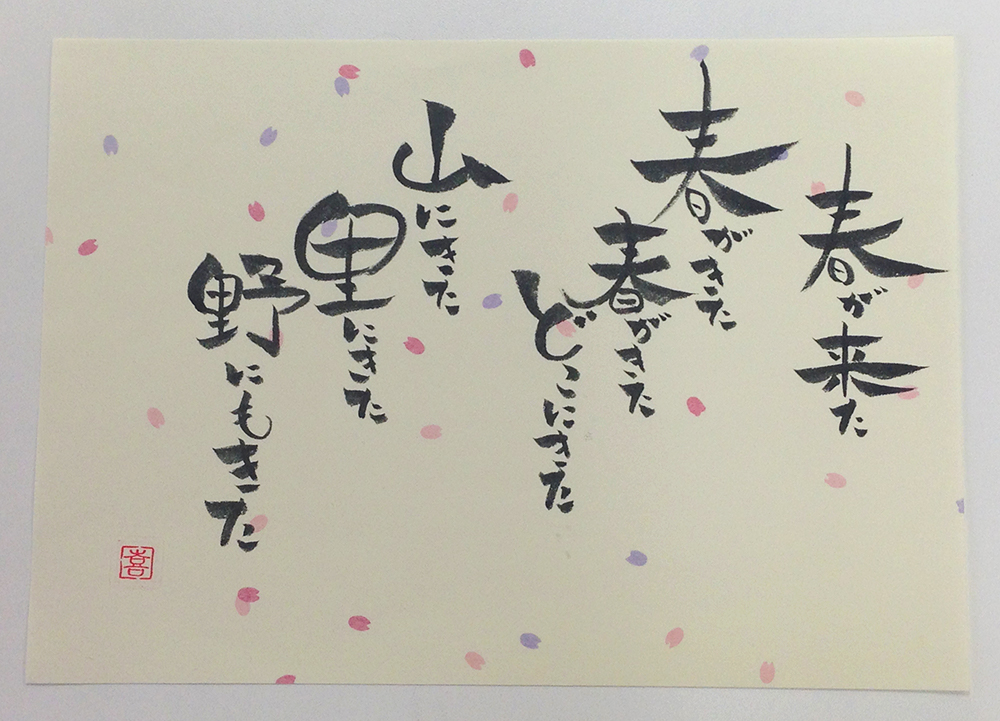 春が来た
春がきた
春がきた
どこにきた
山にきた
里にきた
野にもきた
喜